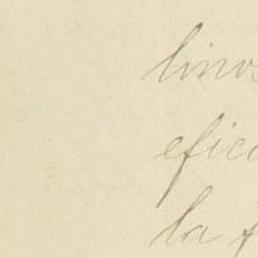 linos
efica
la